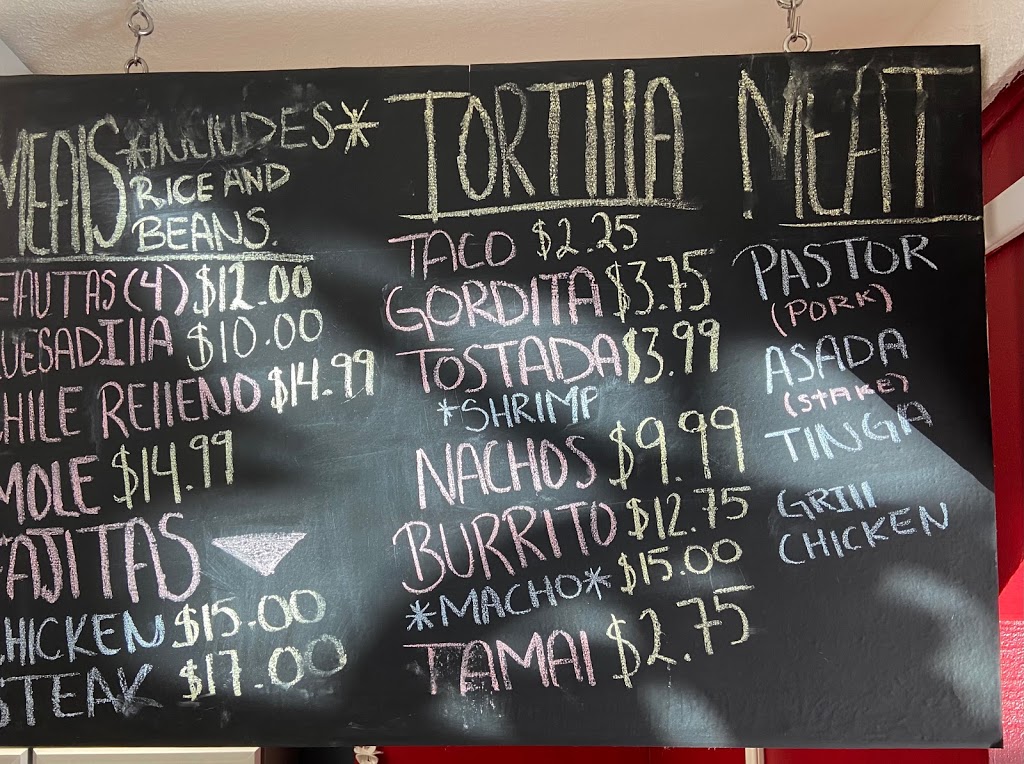 MEALS *INCLUDES*
RICE AND
BEANS.
FlAUTAS (4) $12.00
QUESADIllA $10.00
CHILE REllENO $14.99
MOLE $14.99
FAJITAS
CHICKEN $15.00
STEAK $17.00
TORTIllA
TACO $2.25
GORDITA $3.75
TOSTADA $3.99
*SHRIMP
NACHOS $9.99
BURRITO $12.75
*MACHO* $15.00
TAMAl $2.75
MEAT
PASTOR
(PORK)
ASADA
(STAKE)
TINGA
GRIll
CHICKEN